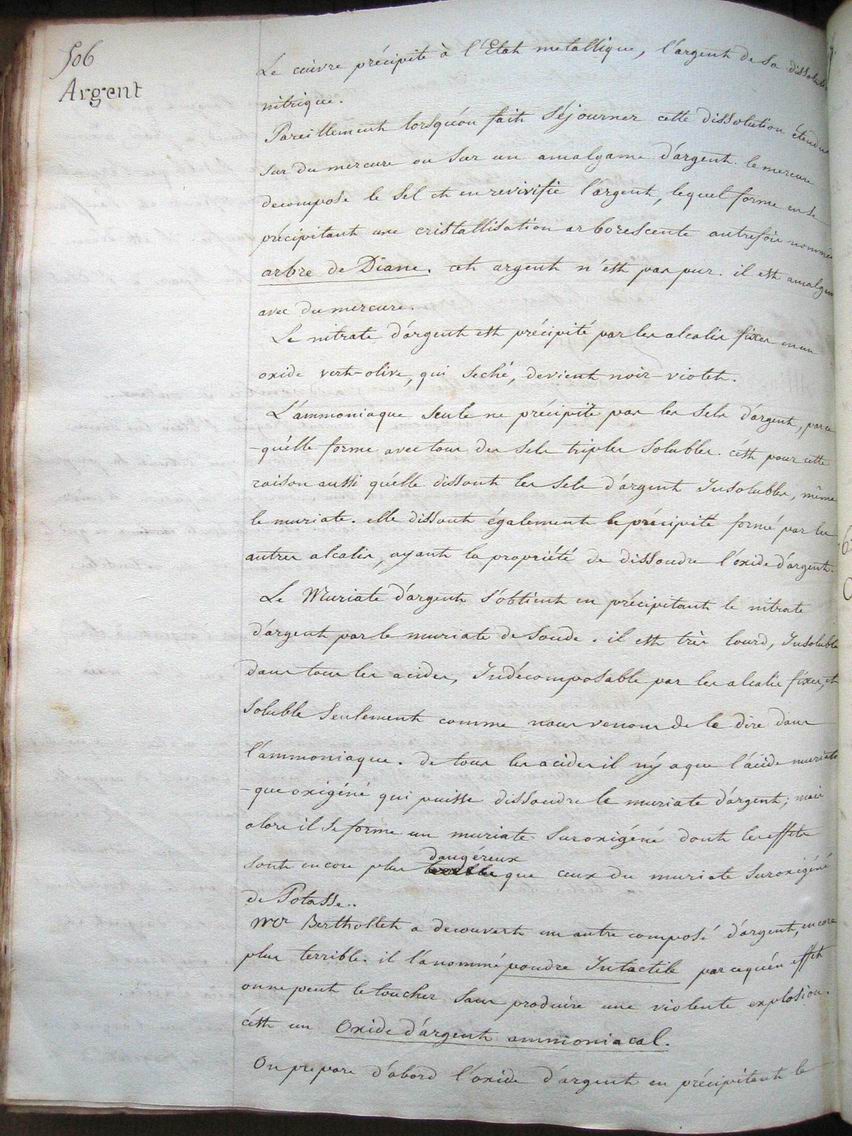 506
Argent
Le cuivre précipite à l'Etat metallique, l'argent de sa dissolution
nitrique.
Pareillement lorsqu'on fait séjourner cette dissolution étendue
sur du mercure ou sur un amalgame d'argent. le mercure
decompose le sel et en revivifie l'argent, lequel forme en se
précipitant une cristallisation arborescente autrefois nommée
arbre de Diane. cet argent n'est pas pur. il est amalgamé
avec du mercure.
Le nitrate d'argent est précipité par les alcalis fixes en un
oxide vert-olive, qui seché, devient noir-violet.
L'ammoniaque seule ne précipite pas les sels d'argent, parce
-qu'elle forme avec tous des sels triples solubles. c'est pour cette
raison aussi qu'elle dissout les sels d'argent Insolubles, même
le muriate. elle dissout également le précipité formé par les
autres alcalis, ayant la propriété de dissoudre l'oxide d'argent.
Le Muriate d'argent s'obtient en précipitant le nitrate
d'argent par le muriate de Soude. il est très lourd, Insoluble
dans tous les acides, Indécomposable par les alcalis fixes, et
soluble seulement comme nous venons de le dire dans
l'ammoniaque. de tous les acides il n'y a que l'acide muriati
-que oxigéné qui puisse dissoudre le muriate d'argent; mais
alors il se forme un muriate suroxigéné dont les effets
sont encore plus dangéreux que ceux du muriate suroxigéné
de Potasse.
Mr Berthollet a decouvert un autre composé d'argent, encore
plus terrible. il l'a nommé poudre Intactile parcequ'en effet
on ne peut le toucher sans produire une violente explosion.
c'est un Oxide d'argent ammoniacal.
On prepare d'abord l'oxide d'argent en précipitant le